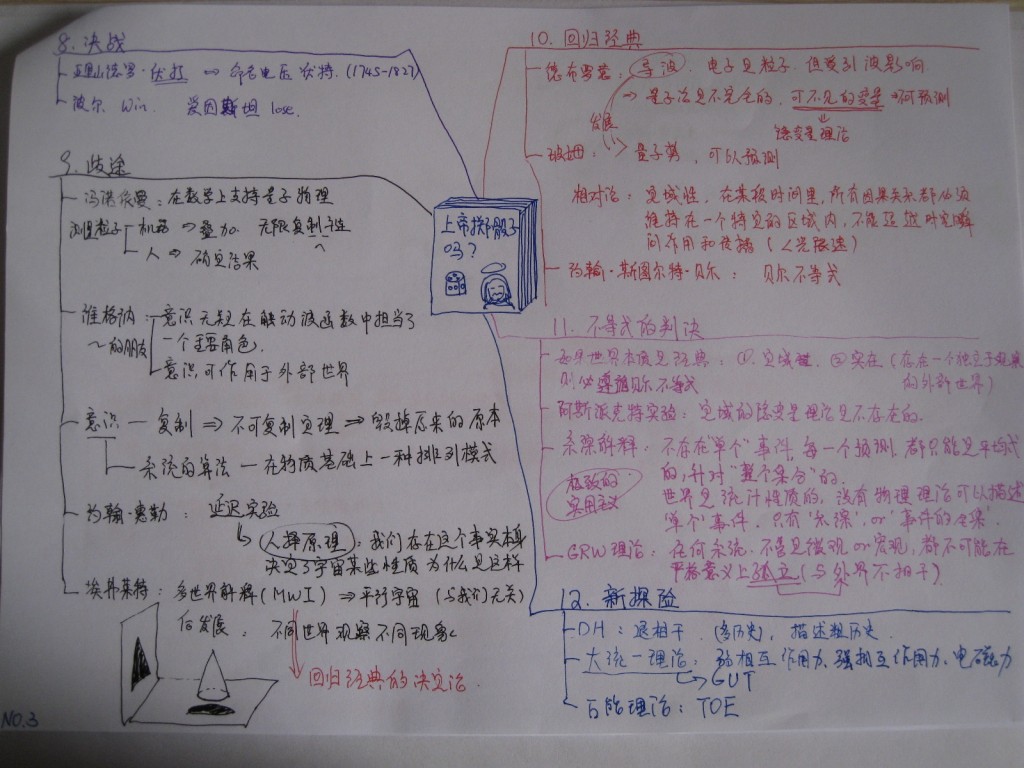 8. 决战
亚历山德罗·伏打 ⇔ 命名电压 伏特. (1745-1827)
波尔 Win. 爱因斯坦 lose.
9. 歧途
冯诺依曼：在数学上支持量子物理
测量粒子
机器 → 叠加. 无限复制性
人 ⇒ 确定结果
维格纳：意识无疑在触动波函数中担当了
～的朋友 一个重要角色.
意识可作用于外部世界
意识 — 复制 ⇒ 不可复制定理 ⇒ 毁掉原来的原本
系统的算法 — 在物质基础上一种排列模式
约翰·惠勒： 延迟实验
人择原理：我们存在这个事实本身
决定了宇宙某些性质 为什么是这样
埃弗莱特：多世界解释(MWI) ⇒ 平行宇宙 (与我们无关)
后发展： 不同世界观察不同现象
回归经典的决定论.
NO.3
上帝掷骰子
吗？
10. 回归经典
德布罗意：导波. 电子是粒子. 但受到波影响
→ 量子论是不完全的. 可不见的变量 →可预测
发展
隐变量理论
玻姆： 量子势, 可以预测
相对论：定域性, 在某段时间里, 所有因果关系都必须
维持在一个特定的区域内, 不能超越时空瞬
间作用和传播 (<光速)
约翰·斯图尔特·贝尔： 贝尔不等式
11. 不等式的判决
如果世界本质是经典：①. 定域性. ②实在 (存在一个独立于观察
则必遵循贝尔不等式 的外部世界)
阿斯派克特实验：定域的隐变量理论是不存在的.
系综解释：不存在"单个"事件, 每一个预测. 都只能是平均式
的, 针对"整个集合"的.
极致的
实用主义
世界是统计性质的, 没有物理理论可以描述
"单个"事件, 只有"系综", or"事件的全集".
GRW理论：任何系统. 不管是微观 or宏观, 都不可能在
严格意义上孤立 (与外界不相干).
12. 新探险
DH：退相干. (多历史), 描述粗历史
大统一理论：弱相互作用力、强相互作用力、电磁力
GUT
万能理论：TOE